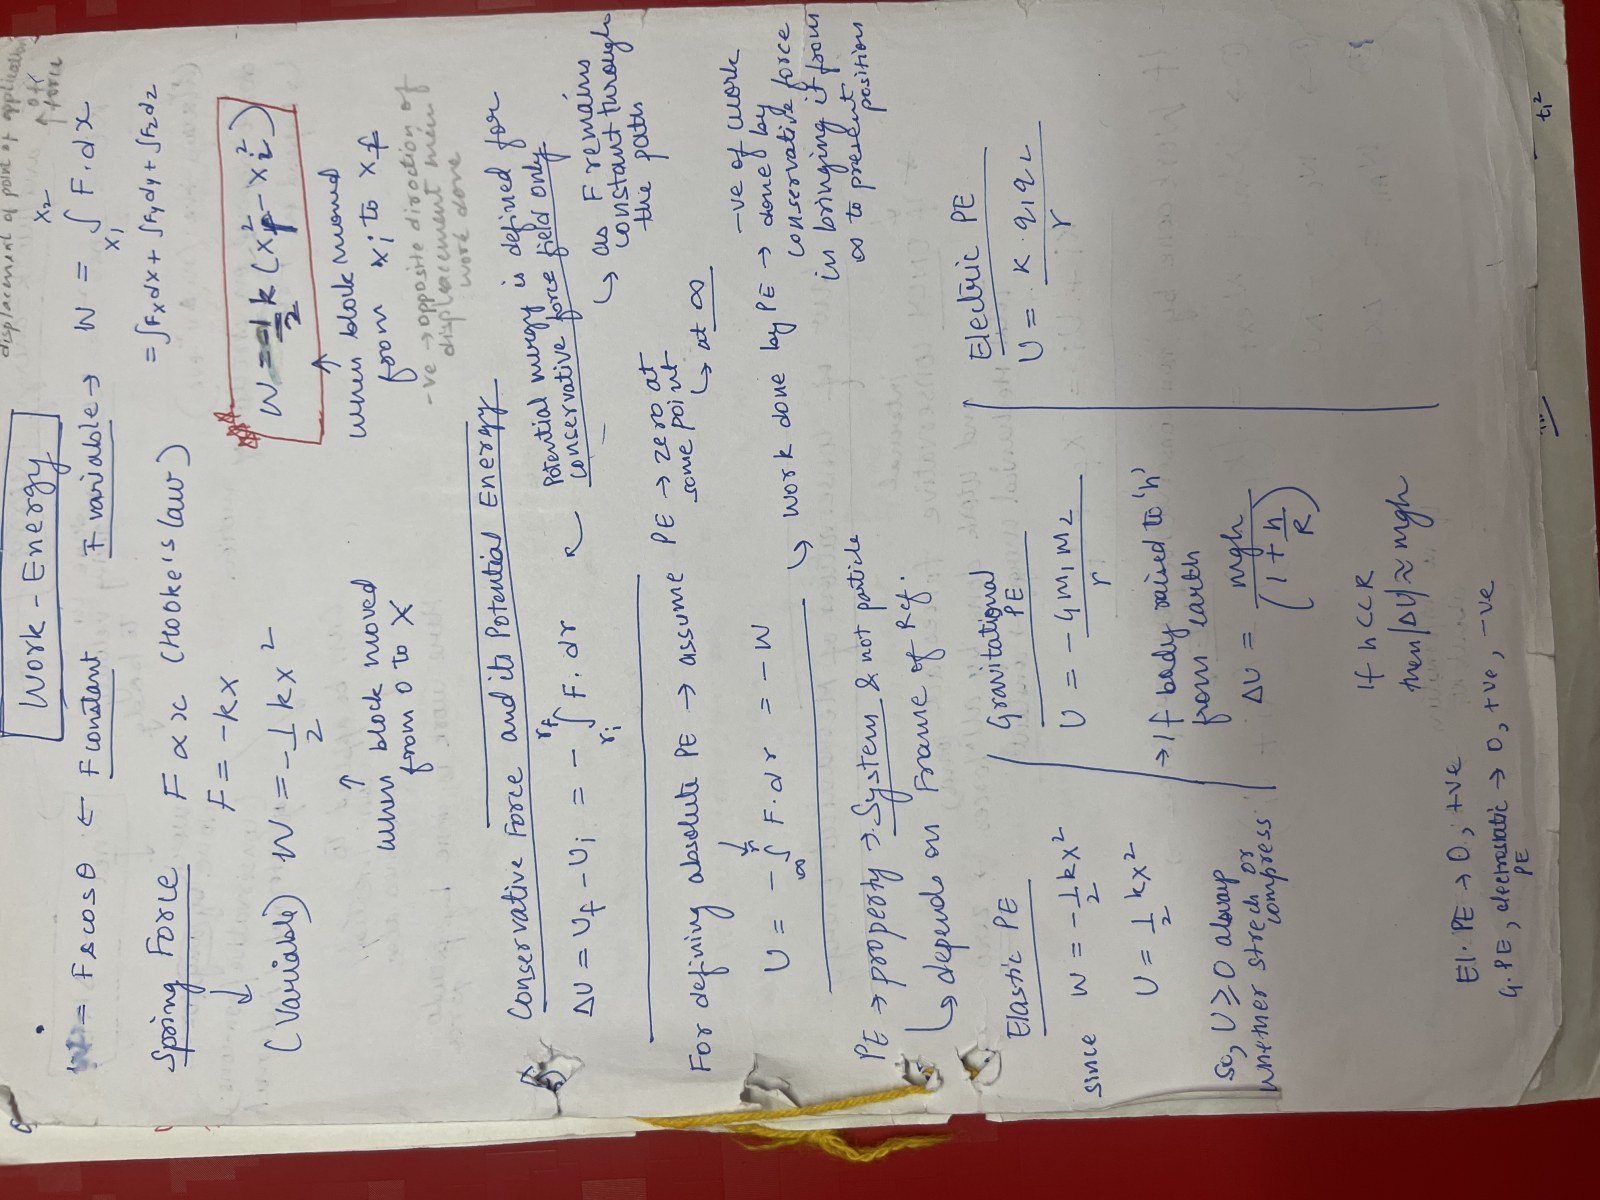 Work-Energy
displacement of point of application
of
force
W = Fscosθ ← F constant
F variable → W = ∫ F.dx
x₂
x₁
= ∫Fxdx + ∫Fydy + ∫Fzdz
Spring Force
(Variable)
F ∝ x (Hooke's law)
F = -kx
W = -1/2 kx²
when block moved
from 0 to x
W = -1/2 k (xf² - xi²)
when block moved
from xi to xf
-ve → opposite direction of
displacement when
work done
Conservative Force and its Potential Energy
ΔU = Uf - Ui = - ∫ F.dr
rf
ri
Potential energy is defined for
conservative force field only
↳ as F remains
constant through
the path
For defining absolute PE → assume PE → zero at
some point
↳ at ∞
U = - ∫ F.dr = -W
r
∞
↳ work done by PE → -ve of work
done by
conservative force
in bringing it from
∞ to present
position
PE → property → System & not particle
↳ depends on Frame of Ref.
Elastic PE
since W = -1/2 kx²
U = 1/2 kx²
So, U ≥ 0 alway
whether strech or
compress
Gravitational
PE
U = -Gm₁m₂/r
→ If body raised to 'h'
from earth
ΔU = mgh/(1 + h/R)
If h<<R
then |ΔU| ≈ mgh
Electric PE
U = K.q₁q₂/r
El. PE → 0, +ve
G.PE, electrostatic → 0, +ve, -ve
PE
t₁²